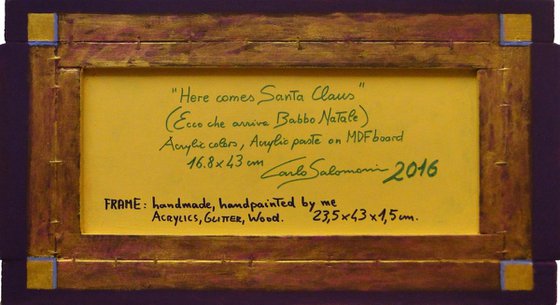 "Here comes Santa Claus"
(Ecco che arriva Babbo Natale)
Acrylic colors, Acrylic paste on MDF board
16.8 x 43 cm Carlo Salomoni 2016
FRAME: handmade, handpainted by me
Acrylics, Glitter, Wood. 23,5 x 43 x 1,5 cm.